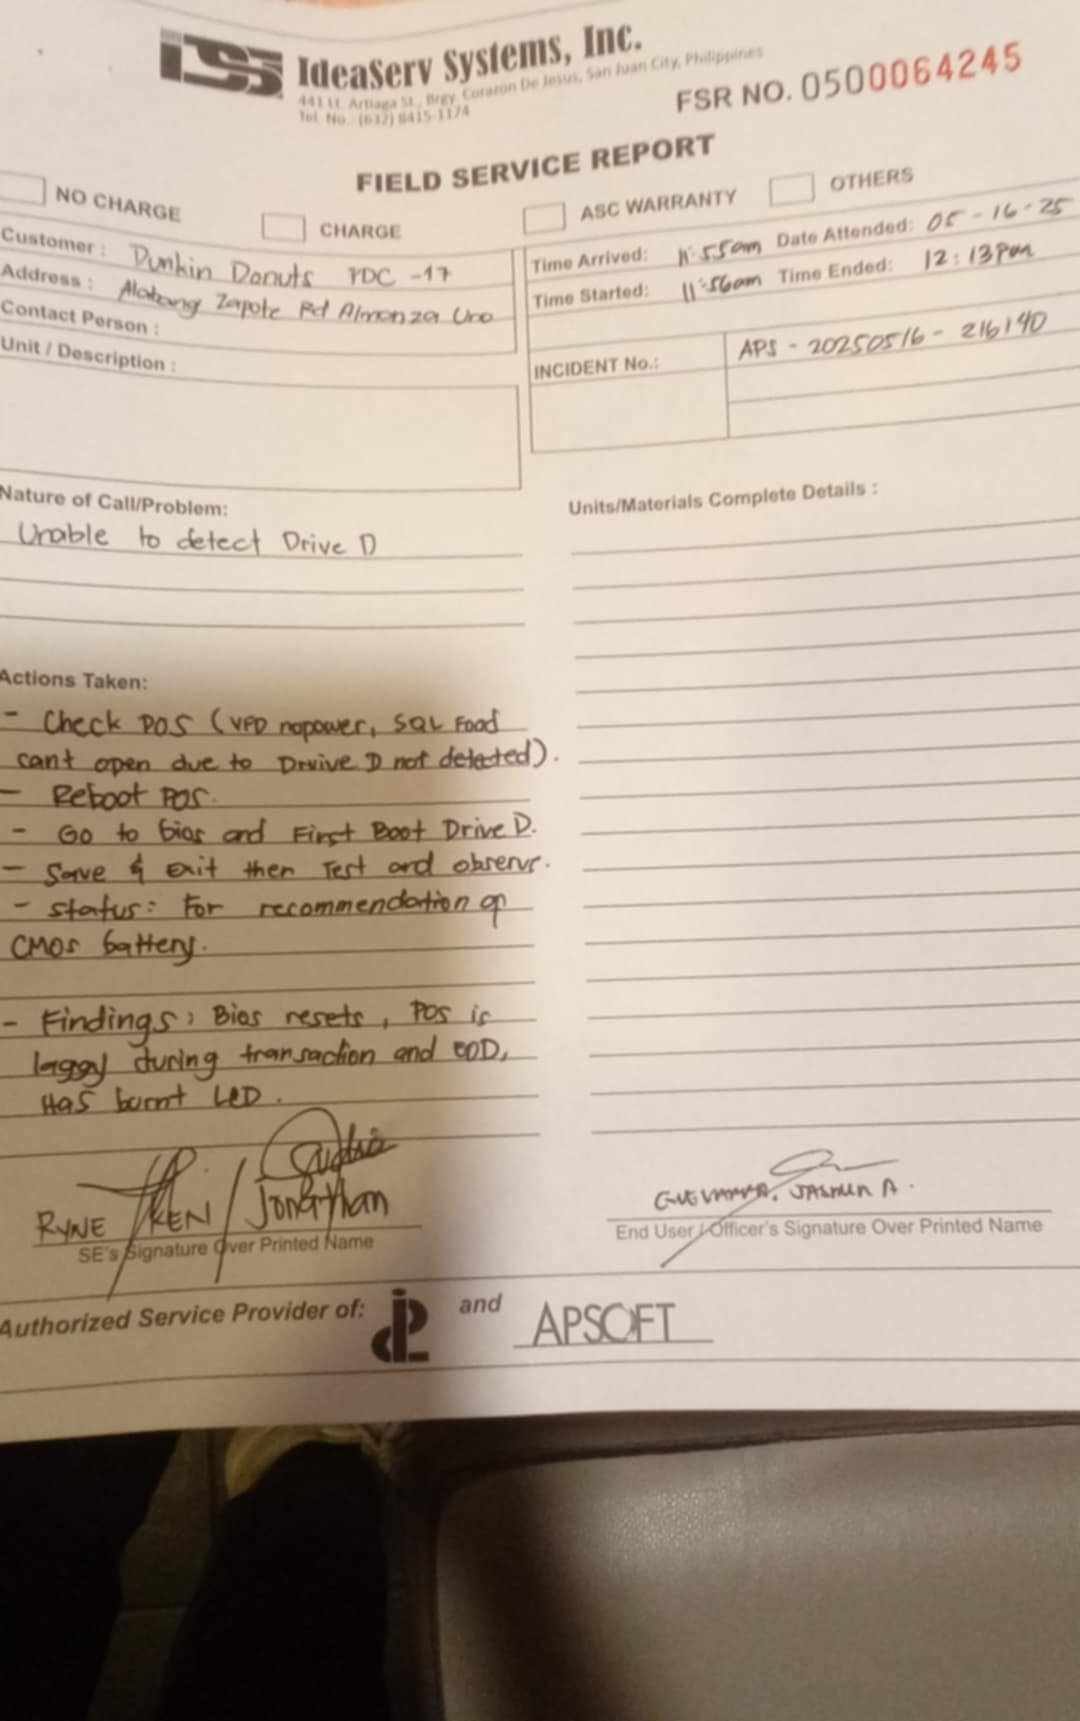 ISS IdeaServ Systems, Inc.
441 Lt. Artiaga St., Brgy. Corazon De Jesus, San Juan City, Philippines
Tel. No. : (632) 8415-1174
FSR NO. 0500064245
FIELD SERVICE REPORT
NO CHARGE CHARGE ASC WARRANTY OTHERS
Customer : Dunkin Donuts PDC -17
Address : Alabang Zapote Rd Almanza Uno
Contact Person :
Unit / Description :
Time Arrived: 11:55am Date Attended: 05-16-25
Time Started: 11:56am Time Ended: 12:13pm
INCIDENT No.: APS - 20250516 - 216140
Nature of Call/Problem:
Unable to detect Drive D
Units/Materials Complete Details :
Actions Taken:
- Check POS (VFD nopower, SQL Food
cant open due to Drvive D not detected).
- Reboot POS.
- Go to bios and First Boot Drive D.
- Save & Exit then Test and observe.
- Status: For recommendation of
CMOS battery.
- Findings: Bios resets, POS is
laggy during transaction and EOD,
Has burnt LED.
RYNE KEN / Jonathan
SE's Signature Over Printed Name
JASMIN A.
End User / Officer's Signature Over Printed Name
Authorized Service Provider of: and APSOFT